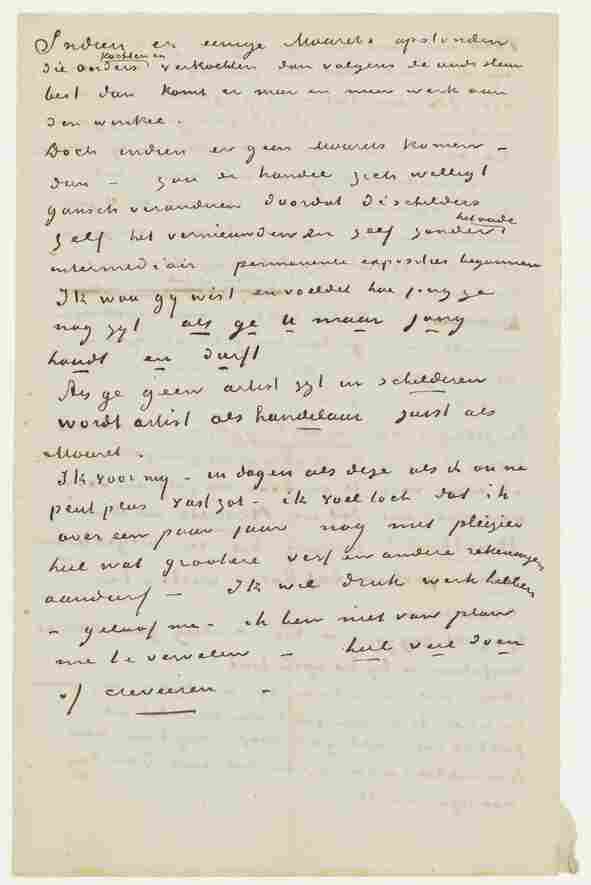 Indien er eenige Mourets opstonden
die anders kochten en verkochten dan volgens de oude sleur
best dan komt er meer en meer werk aan
den winkel.
Doch indien er geen Mourets komen –
dan – zou de handel zich welligt
gansch veranderen doordat de schilders
zelf het vernieuwden en zelf zonder het oude
intermediair permanente exposities begonnen
Ik wou gy wist en voeldet hoe jong ge
nog zyt als ge U maar jong
houdt en durft
Als ge geen artist zyt in schilderen
wordt artist als handelaar juist als
Mouret.
Ik voor my – in dagen als deze als ik on ne
peut plus vast zat – ik voel toch dat ik
over een paar jaar nog met pleizier
heel wat grootere verf en andere rekeningen
aandurf – Ik wil druk werk hebben
– geloof me – ik ben niet van plan
me te vervelen – heel veel doen
of creveeren –